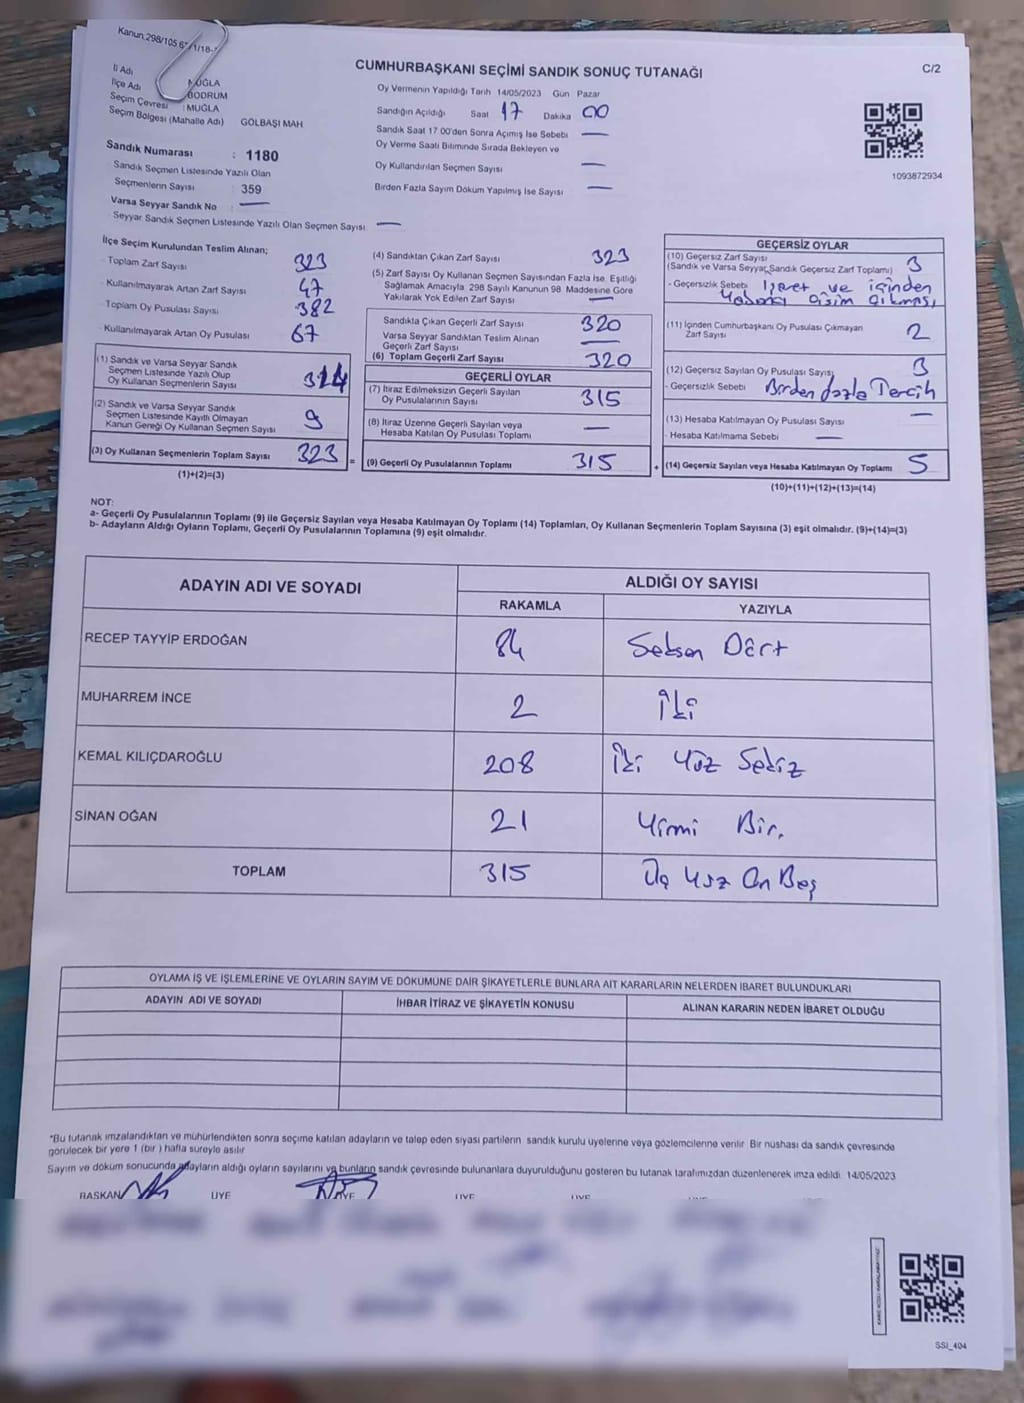 Kanun.298/105
C/2
CUMHURBAŞKANI SEÇİMİ SANDIK SONUÇ TUTANAĞI
İl Adı MUĞLA
İlçe Adı BODRUM
Seçim Çevresi : MUĞLA
Seçim Bölgesi (Mahalle Adı) GÖLBAŞI MAH
Oy Vermenin Yapıldığı Tarih 14/05/2023 Gün Pazar
Sandığın Açıldığı Saat 17 Dakika 00
Sandık Saat 17 00'den Sonra Açımış İse Sebebi —
Oy Verme Saati Bitiminde Sırada Bekleyen ve
Oy Kullandırılan Seçmen Sayısı —
Birden Fazla Sayım Döküm Yapılmış İse Sayısı —
1093872934
Sandık Numarası : 1180
Sandık Seçmen Listesinde Yazılı Olan
Seçmenlerin Sayısı : 359
Varsa Seyyar Sandık No : —
Seyyar Sandık Seçmen Listesinde Yazılı Olan Seçmen Sayısı —
İlçe Seçim Kurulundan Teslim Alınan;
- Toplam Zarf Sayısı 323
- Kullanılmayarak Artan Zarf Sayısı 47
- Toplam Oy Pusulası Sayısı 382
- Kullanılmayarak Artan Oy Pusulası 67
(1) Sandık ve Varsa Seyyar Sandık
Seçmen Listesinde Yazılı Olup
Oy Kullanan Seçmenlerin Sayısı 314
(2) Sandık ve Varsa Seyyar Sandık
Seçmen Listesinde Kayıtlı Olmayan
Kanun Gereği Oy Kullanan Seçmen Sayısı 9
(3) Oy Kullanan Seçmenlerin Toplam Sayısı 323 =
(1)+(2)=(3)
(4) Sandıktan Çıkan Zarf Sayısı 323
(5) Zarf Sayısı Oy Kullanan Seçmen Sayısından Fazla İse Eşitliği
Sağlamak Amacıyla 298 Sayılı Kanunun 98 Maddesine Göre
Yakılarak Yok Edilen Zarf Sayısı —
Sandıkta Çıkan Geçerli Zarf Sayısı 320
Varsa Seyyar Sandıktan Teslim Alınan
Geçerli Zarf Sayısı —
(6) Toplam Geçerli Zarf Sayısı 320
GEÇERLİ OYLAR
(7) İtiraz Edilmeksizin Geçerli Sayılan
Oy Pusulalarının Sayısı 315
(8) İtiraz Üzerine Geçerli Sayılan veya
Hesaba Katılan Oy Pusulası Toplamı —
(9) Geçerli Oy Pusulalarının Toplamı 315 +
GEÇERSİZ OYLAR
(10) Geçersiz Zarf Sayısı 3
(Sandık ve Varsa Seyyar Sandık Geçersiz Zarf Toplamı)
- Geçersizlik Sebebi İşaret ve içinden
Yabancı cisim çıkması
(11) İçinden Cumhurbaşkanı Oy Pusulası Çıkmayan
Zarf Sayısı 2
(12) Geçersiz Sayılan Oy Pusulası Sayısı 3
- Geçersizlik Sebebi Birden fazla Tercih
(13) Hesaba Katılmayan Oy Pusulası Sayısı —
- Hesaba Katılmama Sebebi —
(14) Geçersiz Sayılan veya Hesaba Katılmayan Oy Toplamı 5
(10)+(11)+(12)+(13)=(14)
NOT:
a- Geçerli Oy Pusulalarının Toplamı (9) ile Geçersiz Sayılan veya Hesaba Katılmayan Oy Toplamı (14) Toplamları, Oy Kullanan Seçmenlerin Toplam Sayısına (3) eşit olmalıdır. (9)+(14)=(3)
b- Adayların Aldığı Oyların Toplamı, Geçerli Oy Pusulalarının Toplamına (9) eşit olmalıdır.
ADAYIN ADI VE SOYADI
ALDIĞI OY SAYISI
RAKAMLA YAZIYLA
RECEP TAYYİP ERDOĞAN 84 Seksen Dört
MUHARREM İNCE 2 İki
KEMAL KILIÇDAROĞLU 208 İki Yüz Sekiz
SİNAN OĞAN 21 Yirmi Bir.
TOPLAM 315 Üç Yüz On Beş
OYLAMA İŞ VE İŞLEMLERİNE VE OYLARIN SAYIM VE DÖKÜMÜNE DAİR ŞİKAYETLERLE BUNLARA AİT KARARLARIN NELERDEN İBARET BULUNDUKLARI
ADAYIN ADI VE SOYADI İHBAR İTİRAZ VE ŞİKAYETİN KONUSU ALINAN KARARIN NEDEN İBARET OLDUĞU
*Bu tutanak imzalandıktan ve mühürlendikten sonra seçime katılan adayların ve talep eden siyasi partilerin sandık kurulu üyelerine veya gözlemcilerine verilir Bir nüshası da sandık çevresinde
görülecek bir yere 1 (bir ) hafta süreyle asılır
Sayım ve döküm sonucunda adayların aldığı oyların sayılarını ve bunların sandık çevresinde bulunanlara duyurulduğunu gösteren bu tutanak tarafımızdan düzenlenerek imza edildi 14/05/2023
BAŞKAN ÜYE ÜYE ÜYE ÜYE
SSI_404